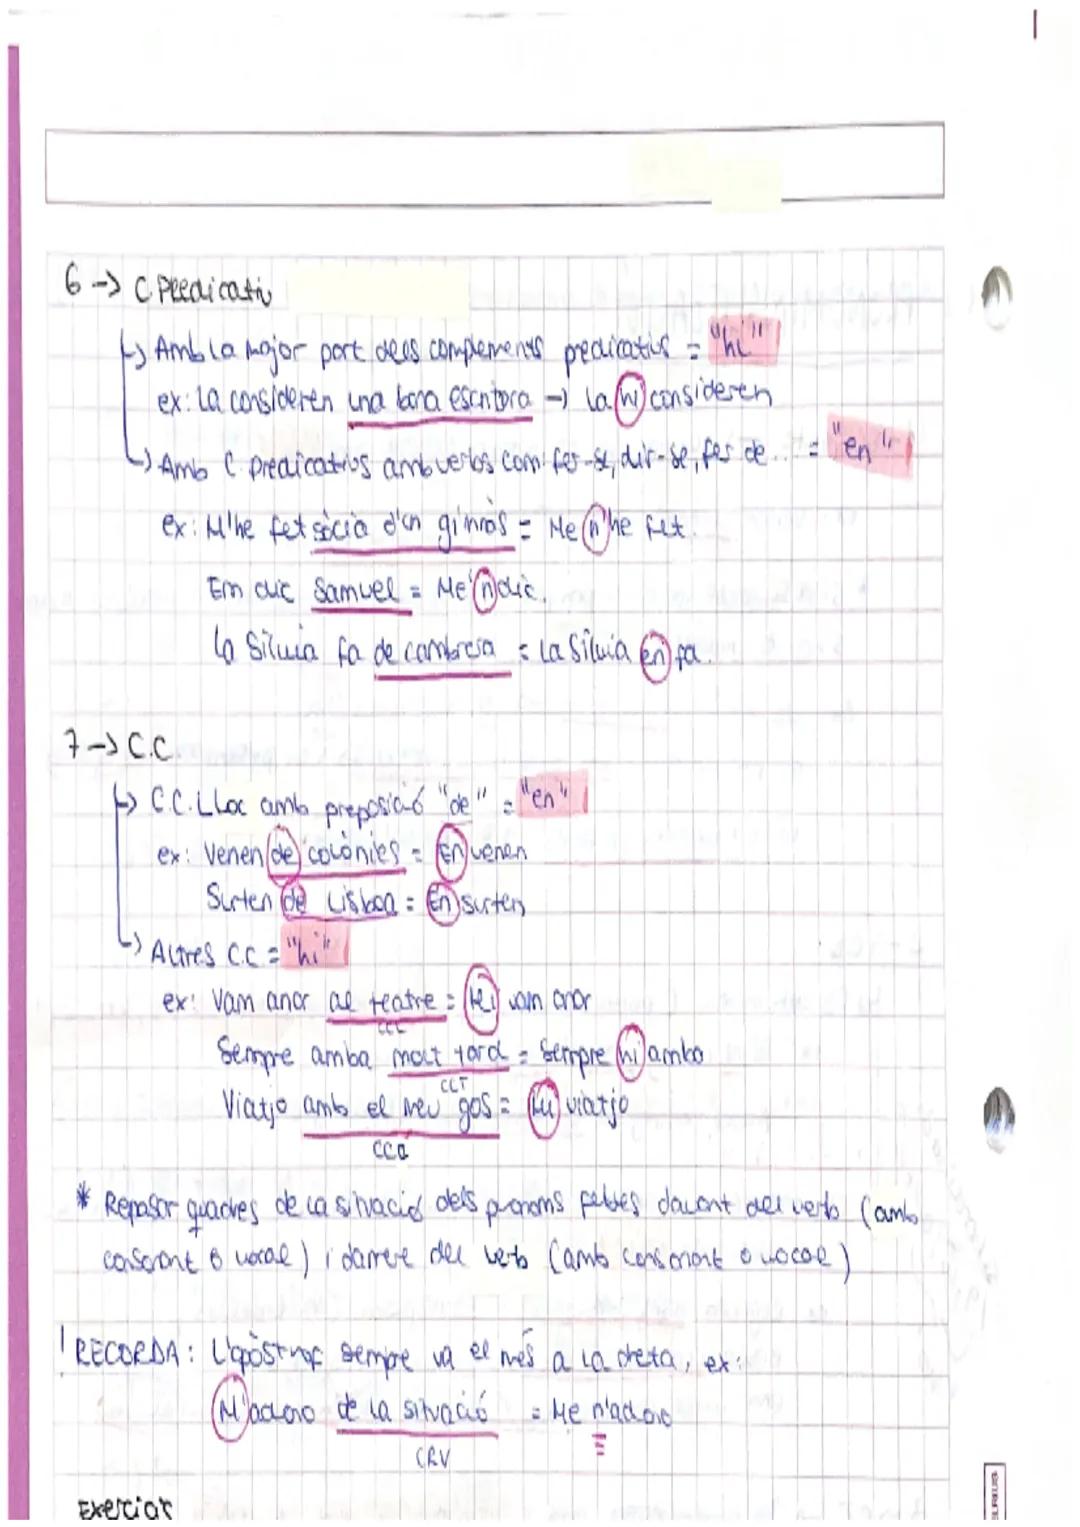 6 -> C. Predicatiu
↳ Amb la major part dels complements predicatius = "hi"
ex: La consideren una bona escritora -> La hi consideren
↳ Amb C. predicatius amb verbs com: fer-se, dir-se, fer de... = "en"
ex: M'he fet sòcia d'un gimnàs = Me n'he fet.
Em dic Samuel = Me'n dic.
La Sílvia fa de cambrera = La Sílvia en fa.
7 -> C.C.
↳ C.C. Lloc amb preposició "de" = "en"
ex: Venen de colònies = En venen
Surten de Lisboa = En surten
↳ Altres C.C = "hi"
ex: Vam anar al teatre = Hi vam anar
CCL
Sempre arriba molt tard = Sempre hi arriba
CCT
Viatjo amb el meu gos = Hi viatjo
CCC
* Repasar quadres de la situació dels pronoms febles davant del verb (amb
consonant o vocal) i darrere del verb (amb consonant o vocal)
! RECORDA: L'apòstrof sempre va el més a la dreta, ex:
M'adono de la situació = Me n'adono
CRV
Exercicis